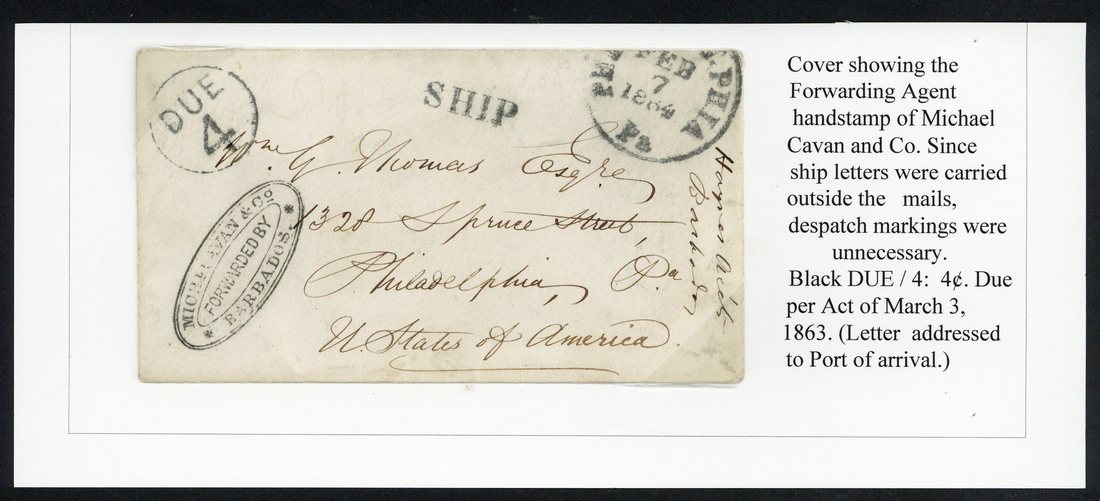 DUE
4
SHIP
FEB
7
1864
Pa
Wm G. Thomas Esqre
1328 Spruce Street,
Philadelphia, Pa
U. States of America.
Barbados
MICHL CAVAN & Co
FORWARDED BY
* BARBADOS. *
Cover showing the
Forwarding Agent
handstamp of Michael
Cavan and Co. Since
ship letters were carried
outside the mails,
despatch markings were
unnecessary.
Black DUE / 4: 4¢. Due
per Act of March 3,
1863. (Letter addressed
to Port of arrival.)